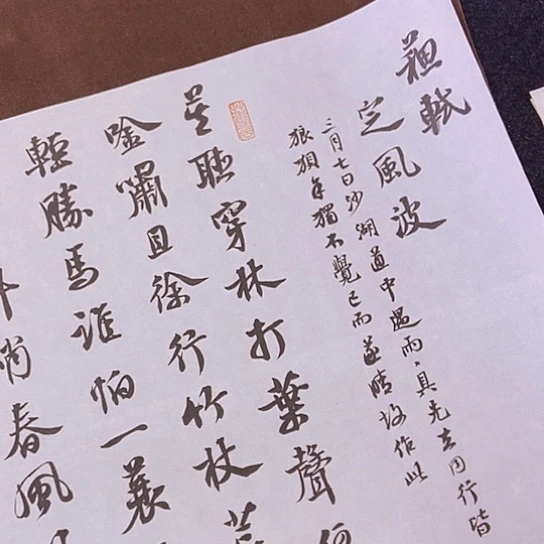 蘇軾
定風波
三月七日沙湖道中遇雨〻具先去同行皆
狼狽余獨不覺已而遂晴故作此
莫聽穿林打葉聲何
吟嘯且徐行竹杖芒
輕勝馬誰怕一蓑
峭春風